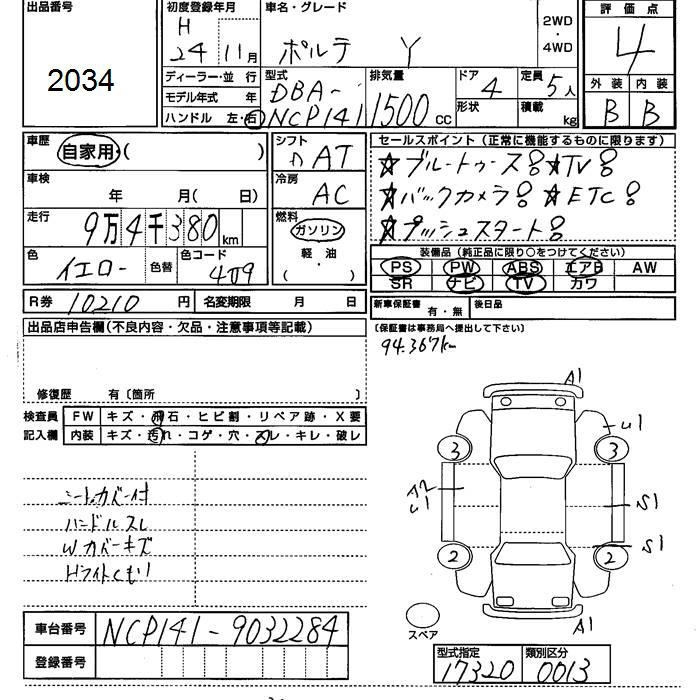 出品番号
2034
初度登録年月
H
24 11月
車名・グレード
ポルテ Y
2WD
・
4WD
評価点
4
外装 内装
B B
ディーラー・並 行
モデル年式 年
ハンドル 左・右
型式
DBA-
NCP141
排気量
1500 cc
ドア
4
形状
定員
5人
積載
kg
車歴
自家用・( )
車検
年 月( 日)
走行
9万4千380km
色
イエロー
色替
色コード
4∅9
シフト
AT
冷房
AC
燃料
ガソリン
軽・油
( )
セールスポイント(正常に機能するものに限ります)
☆ブルートゥース ☆TV
☆バックカメラ ☆ETC
☆プッシュスタート
装備品(純正品に限り○をつけてください)
PS PW ABS エアB AW
SR ナビ TV カワ
R券 10210 円 名変期限 月 日
新車保証書 有・無 後日品
出品店申告欄(不良内容・欠品・注意事項等記載)
(保証書は事務局へ提出して下さい)
94.367km
修復歴 有〔箇所 〕
検査員
記入欄
FW キズ・飛石・ヒビ割・リペア跡・X要
内装 キズ・汚れ・コゲ・穴・スレ・キレ・破レ
シートカバー付
ハンドルスレ
Wカバーキズ
Hライトくもり
A1
U1
3 3
A2
U1
S1
S1
2 2
スペア
A1
車台番号 NCP141-9032284
登録番号
型式指定 類別区分
17320 0013